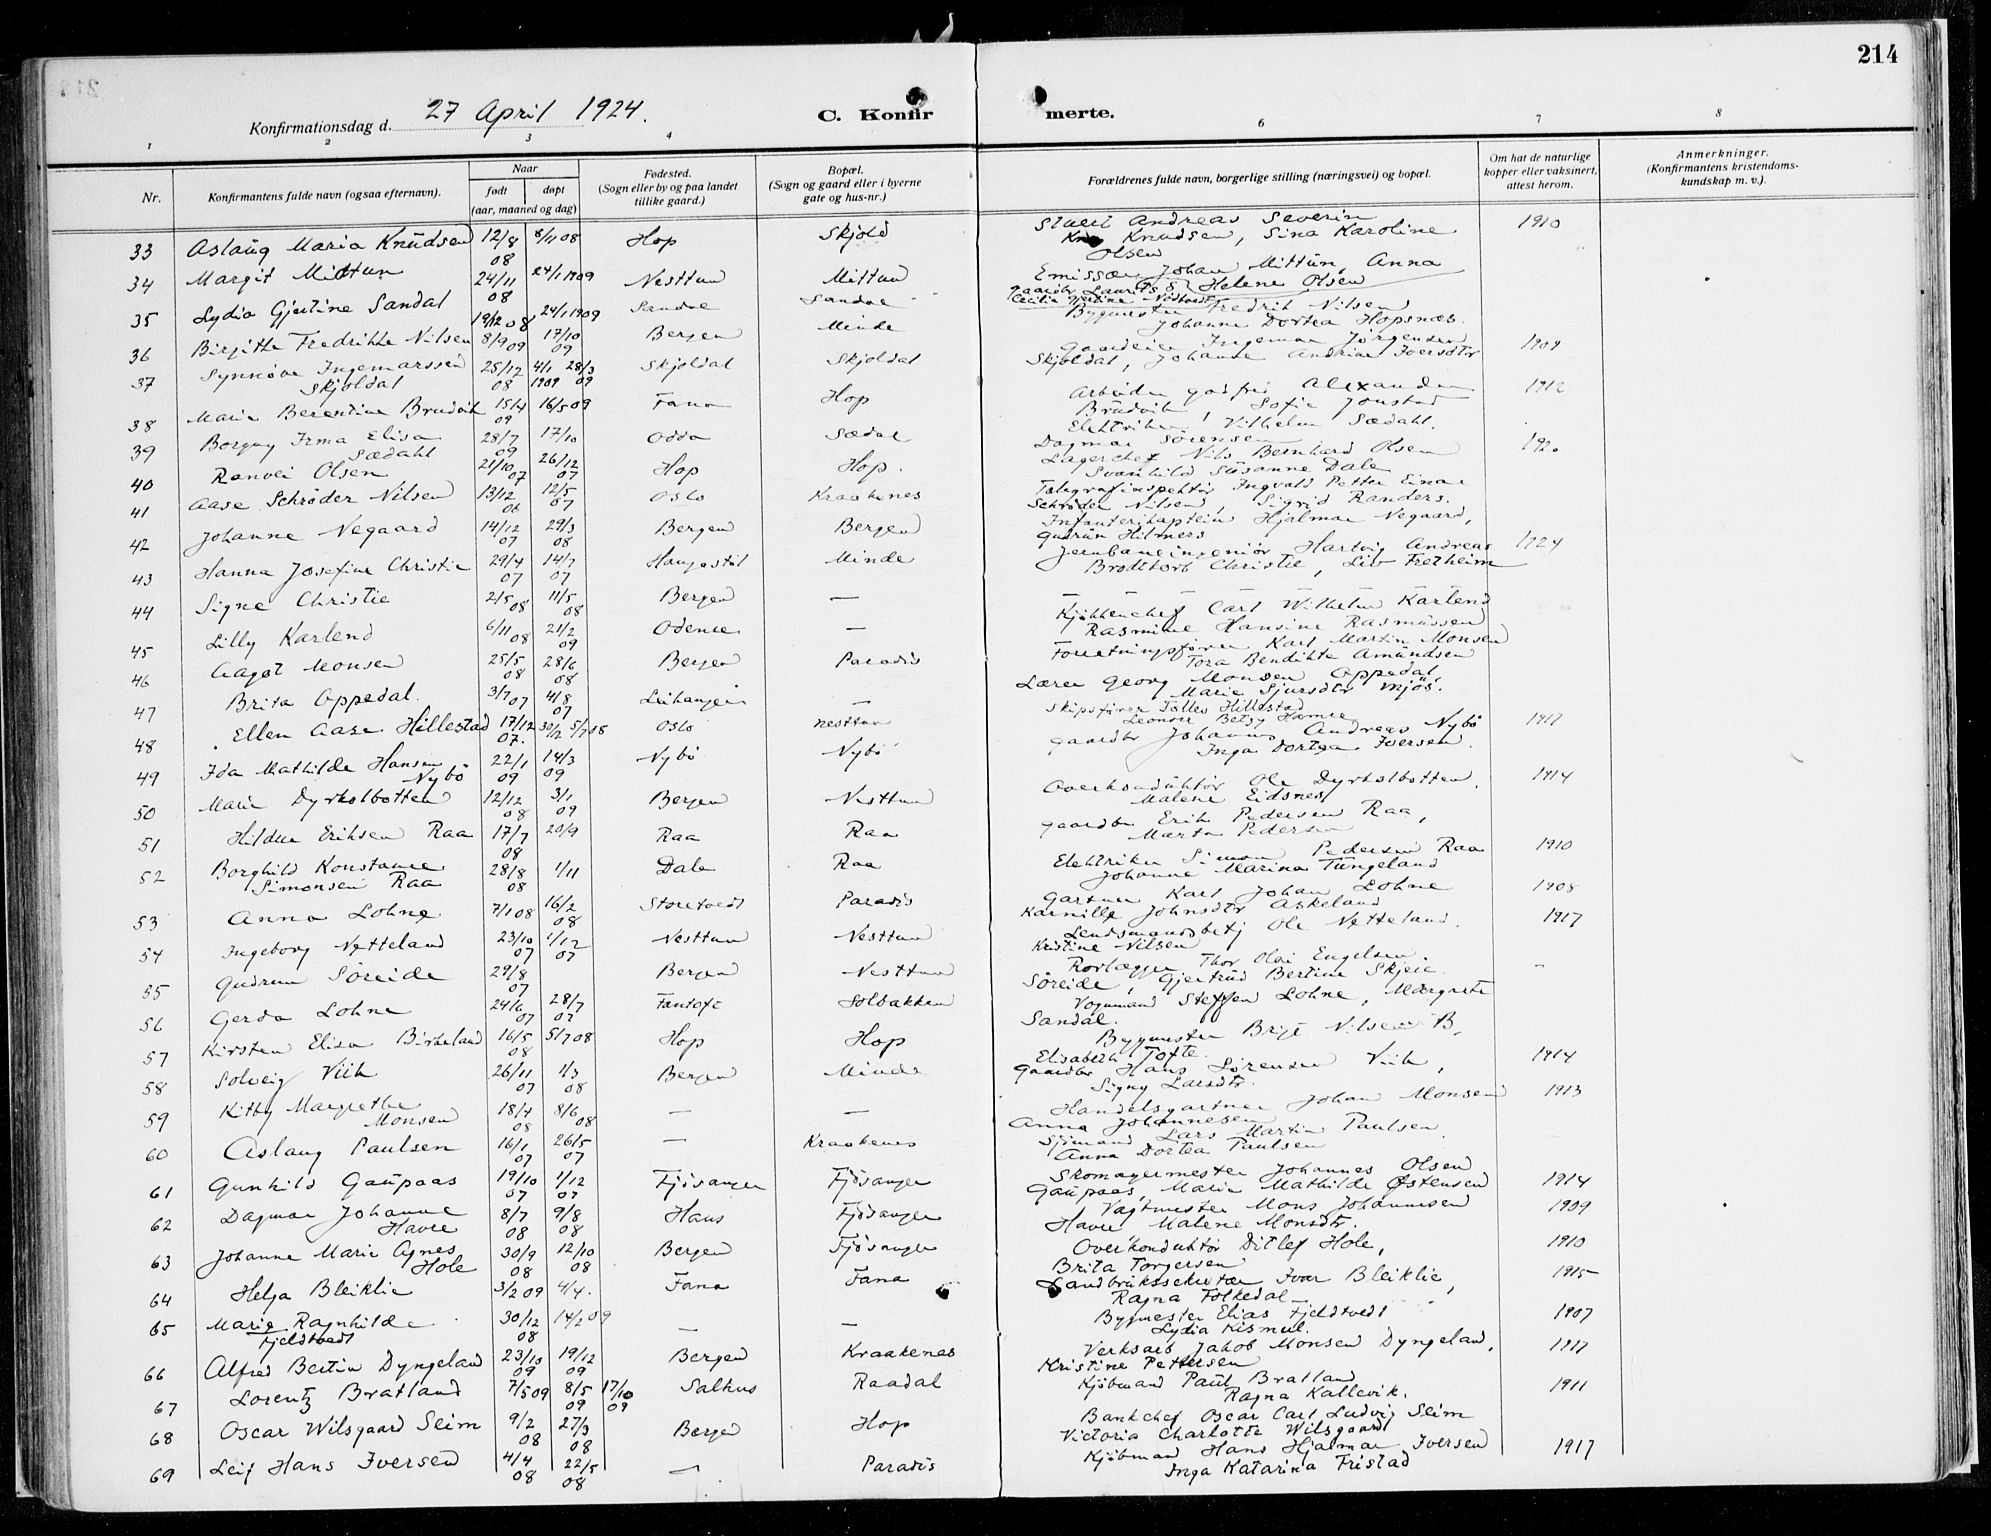 214
Konfirmationsdag d. 27 April 1924. C. Konfir merte.
1 2 3 4 6 7 8
Nr. Konfirmantens fulde navn (ogsaa efternavn). Naar født døpt (aar, maaned og dag) Fødested. (Sogn eller by og paa landet tillike gaard.) Bopæl. (Sogn og gaard eller i byerne gate og hus-nr.) Forældrenes fulde navn, borgerlige stilling (næringsvei) og bopæl. Om hat de naturlige kopper eller vaksinert, attest herom. Anmerkninger. (Konfirmantens kristendomskundskap m. v.).
33 Aslaug Maria Knudsen 12/8 08 8/11 08 Hop Skjold Stuert Andreas Severin Knudsen, Sina Karoline Olsen 1910
34 Margit Mittun 24/11 08 24/1 1909 Nesttun Mittun Emissær Johan Mittun, Anna Helene Olsen
35 Lydia Gjertine Sandal 19/12 08 24/1 1909 Sandal Sandal Gaardbr Laurits S Cecilia Gjertine Nödtvedt
36 Birgitte Fredrikke Nilsen 8/9 09 17/10 09 Bergen Minde Bygmester Fredrik Nilsen Johanne Dortea Hopsnæs.
37 Synnøve Ingemarssen Skjoldal 25/12 08 4/1 1909 28/3 09 Skjoldal Skjoldal Gaardeier Ingemar Jörgensen Skjoldal, Johanne Andrine Iversdtr 1909
38 Marie Berentine Brudvik 15/4 09 16/5 09 Fana Hop Arbeider Godfrei Alexander Brudvik, Sofie Jonstad 1912
39 Borgny Irma Elisa Sædahl 28/7 09 17/10 Odda Sædal Elektriker Vilhelm Sædahl. Dagmar Sörensen
40 Ranvei Olsen 21/10 07 26/12 07 Hop Hop. Lagerchef Nils Bernhard Olsen Svanhild Susanne Dale 1920
41 Aase Schröder Nilsen 13/12 06 12/5 07 Oslo Kraakenes Telegrafinspektör Ingvald Petter Einar Schröder Nilsen, Sigrid Randers.
42 Johanne Negaard 14/12 07 29/3 08 Bergen Bergen Infanterikaptein Hjalmar Negaard, Gudrun Hilmers
43 Hanna Josefine Christie 29/4 07 14/7 07 Haugastöl Minde Jernbaneingeniör Hartvig Andreas Brodtkorb Christie, Liv Fretheim 1924
44 Signe Christie 2/5 08 11/5 08 Bergen — — — — —
45 Lilly Karlend 6/11 08 21/2 09 Odense — Kjökkenchef Carl Wilhelm Karlend Rasmine Hansine Rasmussen
46 Aagot Monsen 25/5 08 28/6 08 Bergen Paradis Forretningsfører Karl Martin Monsen Tora Bendikte Amundsen
47 Brita Oppedal. 3/7 07 4/8 07 Leikanger — Lærer Georg Monsen Oppedal, Marie Sjursdtr Mjös.
48 Ellen Aase Hillestad 17/12 07. 30/12 5/7 08 Oslo Nesttun Skipsfører Tolles Hillestad Leonore Betsy Hamre
49 Ida Mathilde Hansen Nybö 22/1 09 14/3 09 Nybö Nybö Gaardbr Johannes Andreas Nybö Inga Dortea Iversen. 1917
50 Marie Dyrkolbotten 12/12 08 3/1 09 Bergen Nesttun Overkonduktör Ole Dyrkolbotten. Malene Eidsnes 1914
51 Hildur Eriksen Raa 17/7 08 20/9 Raa Raa Gaardbr Erik Pedersen Raa, Marta Pedersen
52 Borghild Konstanse Simonsen Raa 28/8 08 1/11 Dale Raa Elektriker Simon Pedersen Raa Johanne Marina Tungeland 1910
53 Anna Lohne 7/1 08 16/2 08 Storetvedt Paradis Gartner Karl Johan Lohne Karnille Johnsdtr Askeland 1908
54 Ingeborg Netteland 23/10 07 1/12 07 Nesttun Nesttun Lensmandsbetj Ole Netteland. Kristine Nilsen 1917
55 Gudrun Söreide 29/8 07 Bergen Nesttun Rørlægger Thor Olai Engelsen. Söreide, Gjertrud Bertine Skjeie. -
56 Gerda Lohne 24/6 07 28/7 07 Fantoft Solbakken Vognmand Steffen Lohne, Margrete Sandal.
57 Kirsten Elisa Birkeland 16/5 08 5/7 08 Hop Hop Bygmester Brigt Nilsen B. Elisabeth Tofte.
58 Solveig Viik 26/11 07 1/3 08 Bergen Minde Gaardbr Hans Sörensen Viik, Signy Larsdtr. 1914
59 Kitty Margrethe Monsen 18/4 08 8/6 08 — — Handelsgartner Johan Monsen Anna Johannesen 1913
60 Aslaug Paulsen 16/1 07 26/5 07 — Kraakenes Sjömand Lars Martin Paulsen. Anna Dortea Paulsen
61 Gunhild Gaupaas 19/10 07 1/12 07 Fjösanger Fjösanger Skomagermester Johannes Olsen Gaupaas, Marie Mathilde Østensen 1914
62 Dagmar Johanne Havre 8/7 08 9/8 08 Haus Fjösanger Vagtmester Mons Johannesen Havre Malene Monsdtr. 1909
63 Johanne Marie Agnes Hole 30/9 08 12/10 08 Bergen Fjösanger Overkonduktör Ditlef Hole, Brita Torgersen 1910
64 Helga Bleiklie 3/2 09 4/4. Fana Fana Landbrukssekretær Ivar Bleiklie, Ragna Folkedal 1915
65 Marie Ragnhilde Fjeldtvedt 30/12 08 14/2 09 — — Bygmester Elias Fjeldtvedt Lydia Kismul. 1907
66 Alfred Bertin Dyngeland 23/10 09 19/12 09 Bergen Kraakenes Verksarb Jakob Monsen Dyngeland, Kristine Pettersen 1917
67 Lorentz Bratland 7/5 09 8/5 09 17/10 09 Salhus Raadal Kjöbmand Paul Bratland Ragna Kallevik. 1911
68 Oscar Wilsgaard Seim 9/2 08 27/3 08 Bergen Hop Bankchef Oscar Carl Ludvig Seim Victoria Charlotte Wilsgaard
69 Leif Hans Iversen 4/4 08 22/5 08 — Paradis Kjöbmand Hans Hjalmar Iversen Inga Katarina Fristad 1917